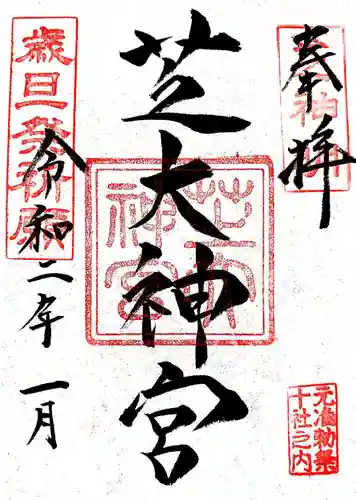 奉拝
芝大神宮
令和二年一月
歳旦祈願
芝大神宮
元准勅祭
十社之内